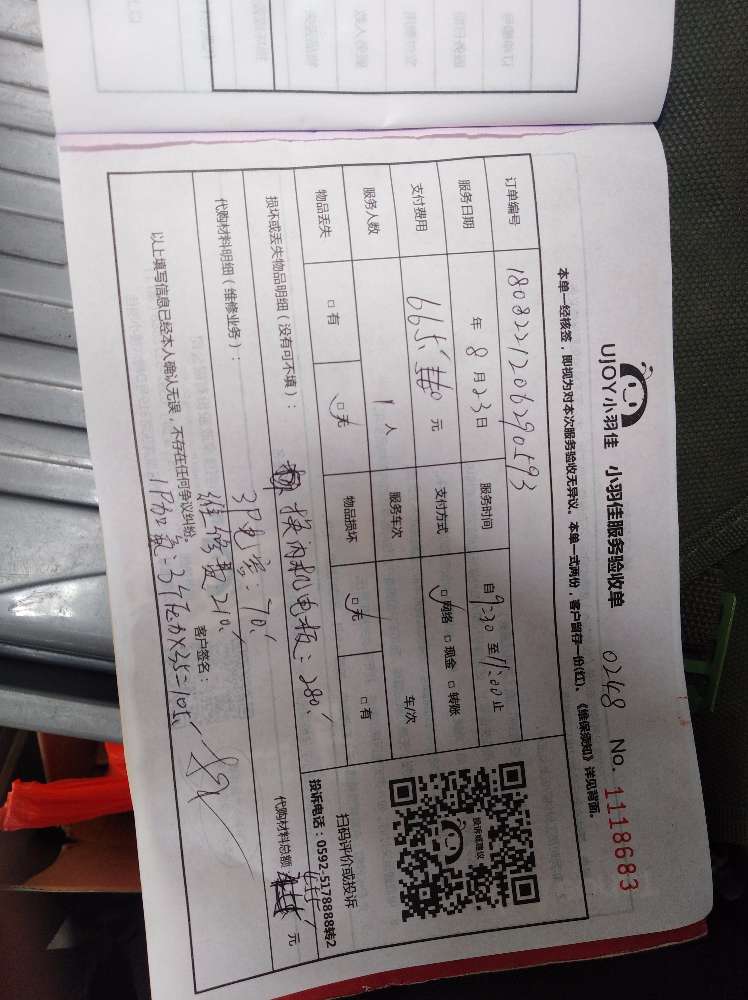 UJOY小羽佳 小羽佳服务验收单 0248 No. 1118683
本单一经核签，即视为对本次服务验收无异议。本单一式两份，客户留存一份(红)、《维保须知》详见背面。
订单编号 1808221206290593
服务日期 年 8 月 23 日 服务时间 自 9:30 至 11:00 止
支付费用 665 元 支付方式 □网络 □现金 □转账
服务人数 1 人 服务车次 车/次
物品丢失 □有 □无 物品损坏 □无 □有
投诉或建议
扫码评价或投诉
投诉电话：0592-5178888转2
损坏或丢失物品明细（没有可不填）：
换内机电板：280
代购材料明细（维修业务）：
3P电容：70
维修费210
代购材料总额 元
1P加氟：3个压力×35=105
以上填写信息已经本人确认无误，不存在任何争议纠纷。 客户签名：